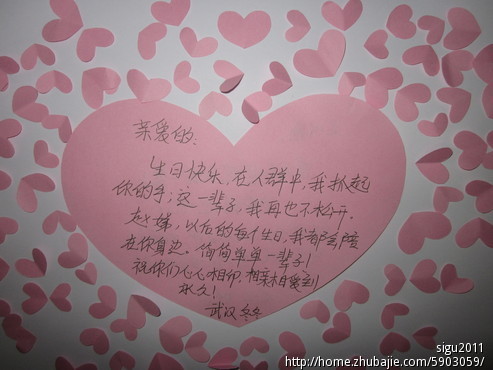 亲爱的:
生日快乐,在人群中,我扒起
你的手;这一辈子,我再也不松开.
赵X娣,以后的每个生日,我都会陪
在你身边。偷偷单单一辈子!
祝你们心心相印,相亲相爱到
永久!
武汉冬冬
sigu2011
http://home.zhubajie.com/5903059/